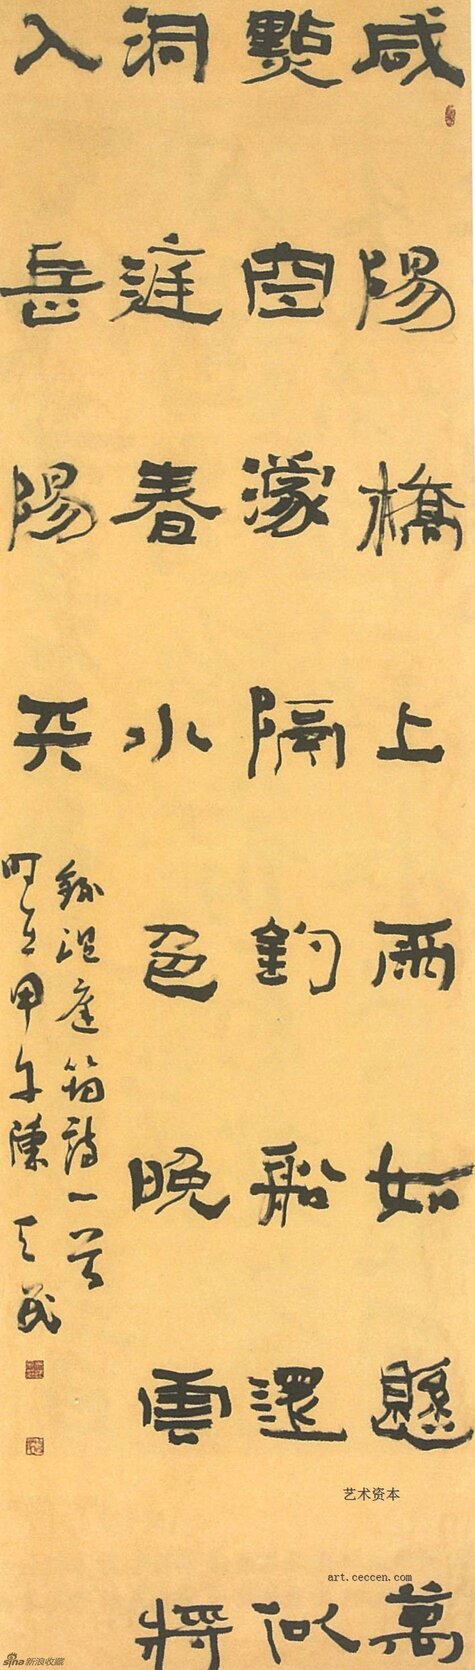 咸陽橋上雨如懸萬
點空濛隔釣船還似
洞庭春水色晚雲將
入岳陽天
錄温庭筠詩一首
時在甲午陳
艺术资本
art.ceccen.com
sina新浪收藏